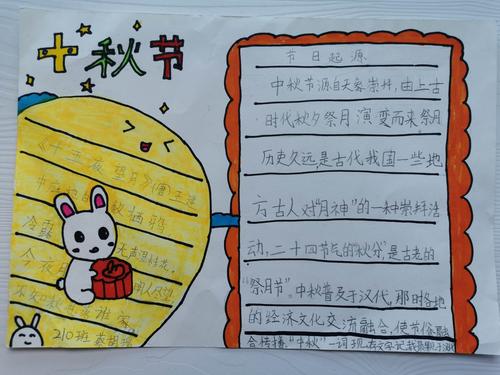 中秋节
《十五夜望月》(唐)王建
中庭地白树栖鸦
冷露无声湿桂花
今夜月明人尽望
不知秋思落谁家
210班
节日起源
中秋节源自天象崇拜,由上古
时代秋夕祭月演变而来祭月
历史久远,是古代我国一些地
方古人对“月神”的一种崇拜活
动,二十四节气的“秋分”是古老的
“祭月节”。中秋普及于汉代,那时各地
的经济文化交流融合,使节俗融
合传播“中秋”一词,现